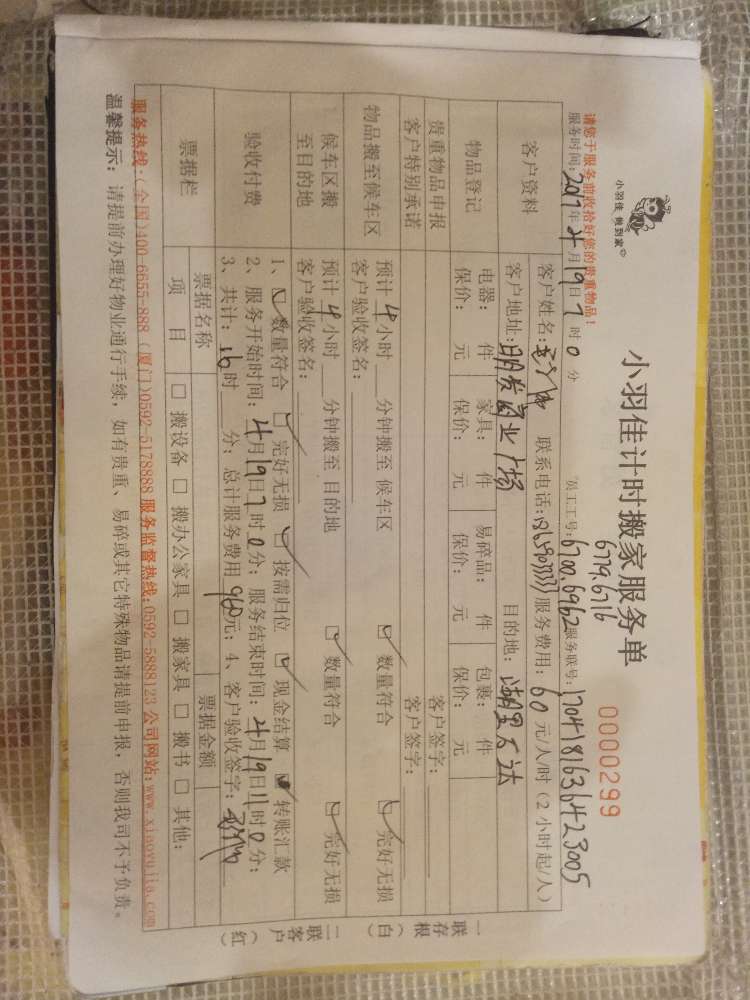 小羽佳 做到家
小羽佳计时搬家服务单
0000299
请您于服务前收拾好您的贵重物品！
6779.6716
服务时间：2017年4月19日7时0分 员工工号：6700.6962 服务联号：1704181636423005
客户资料
客户姓名： 联系电话： 服务费用：60元/人/时（2小时起/人）
客户地址：明发商业广场 目的地：湖里万达
物品登记
电器： 件 家具： 件 易碎品： 件 包裹： 件
保价： 元 保价： 元 保价： 元 保价： 元
贵重物品申报 客户签字：
客户特别承诺 客户签字：
物品搬至候车区
预计4小时 分钟搬至 候车区 数量符合 完好无损
客户验收签名：
候车区搬至目的地
预计4小时 分钟搬至 目的地 数量符合 完好无损
客户验收签名：
验收付费
1、数量符合 完好无损 按需归位 现金结算 转账汇款
2、服务开始时间：4月19日7时0分；服务结束时间：4月19日11时0分；
3、共计：16时 分；总计服务费用960元；4、客户验收签字：
票据栏
票据名称 票据金额
项 目 □ 搬设备 □ 搬办公家具 □ 搬家具 □ 搬书 □ 其他：
服务热线：(全国)400-6655-888 (厦门)0592-5178888 服务监督热线：0592-5888123 公司网站：www.xiaoyujia.com
温馨提示： 请提前办理好物业通行手续，如有贵重、易碎或其它特殊物品请提前申报，否则我司不予负责。
一联存根（白）
二联客户（红）